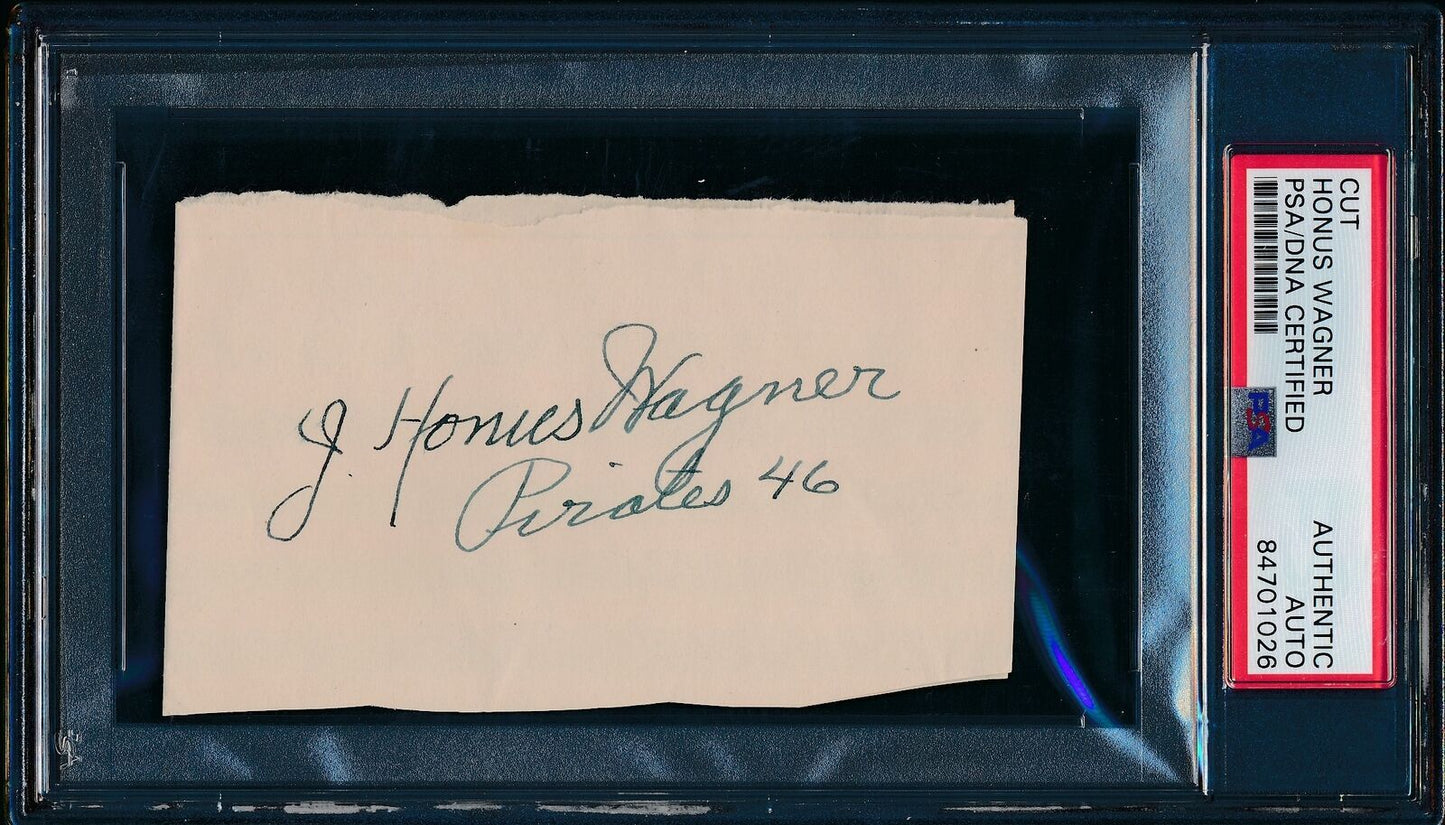 J. Honus Wagner
Pirates 46
CUT
HONUS WAGNER
PSA/DNA CERTIFIED
AUTHENTIC
AUTO
84701026
PSA